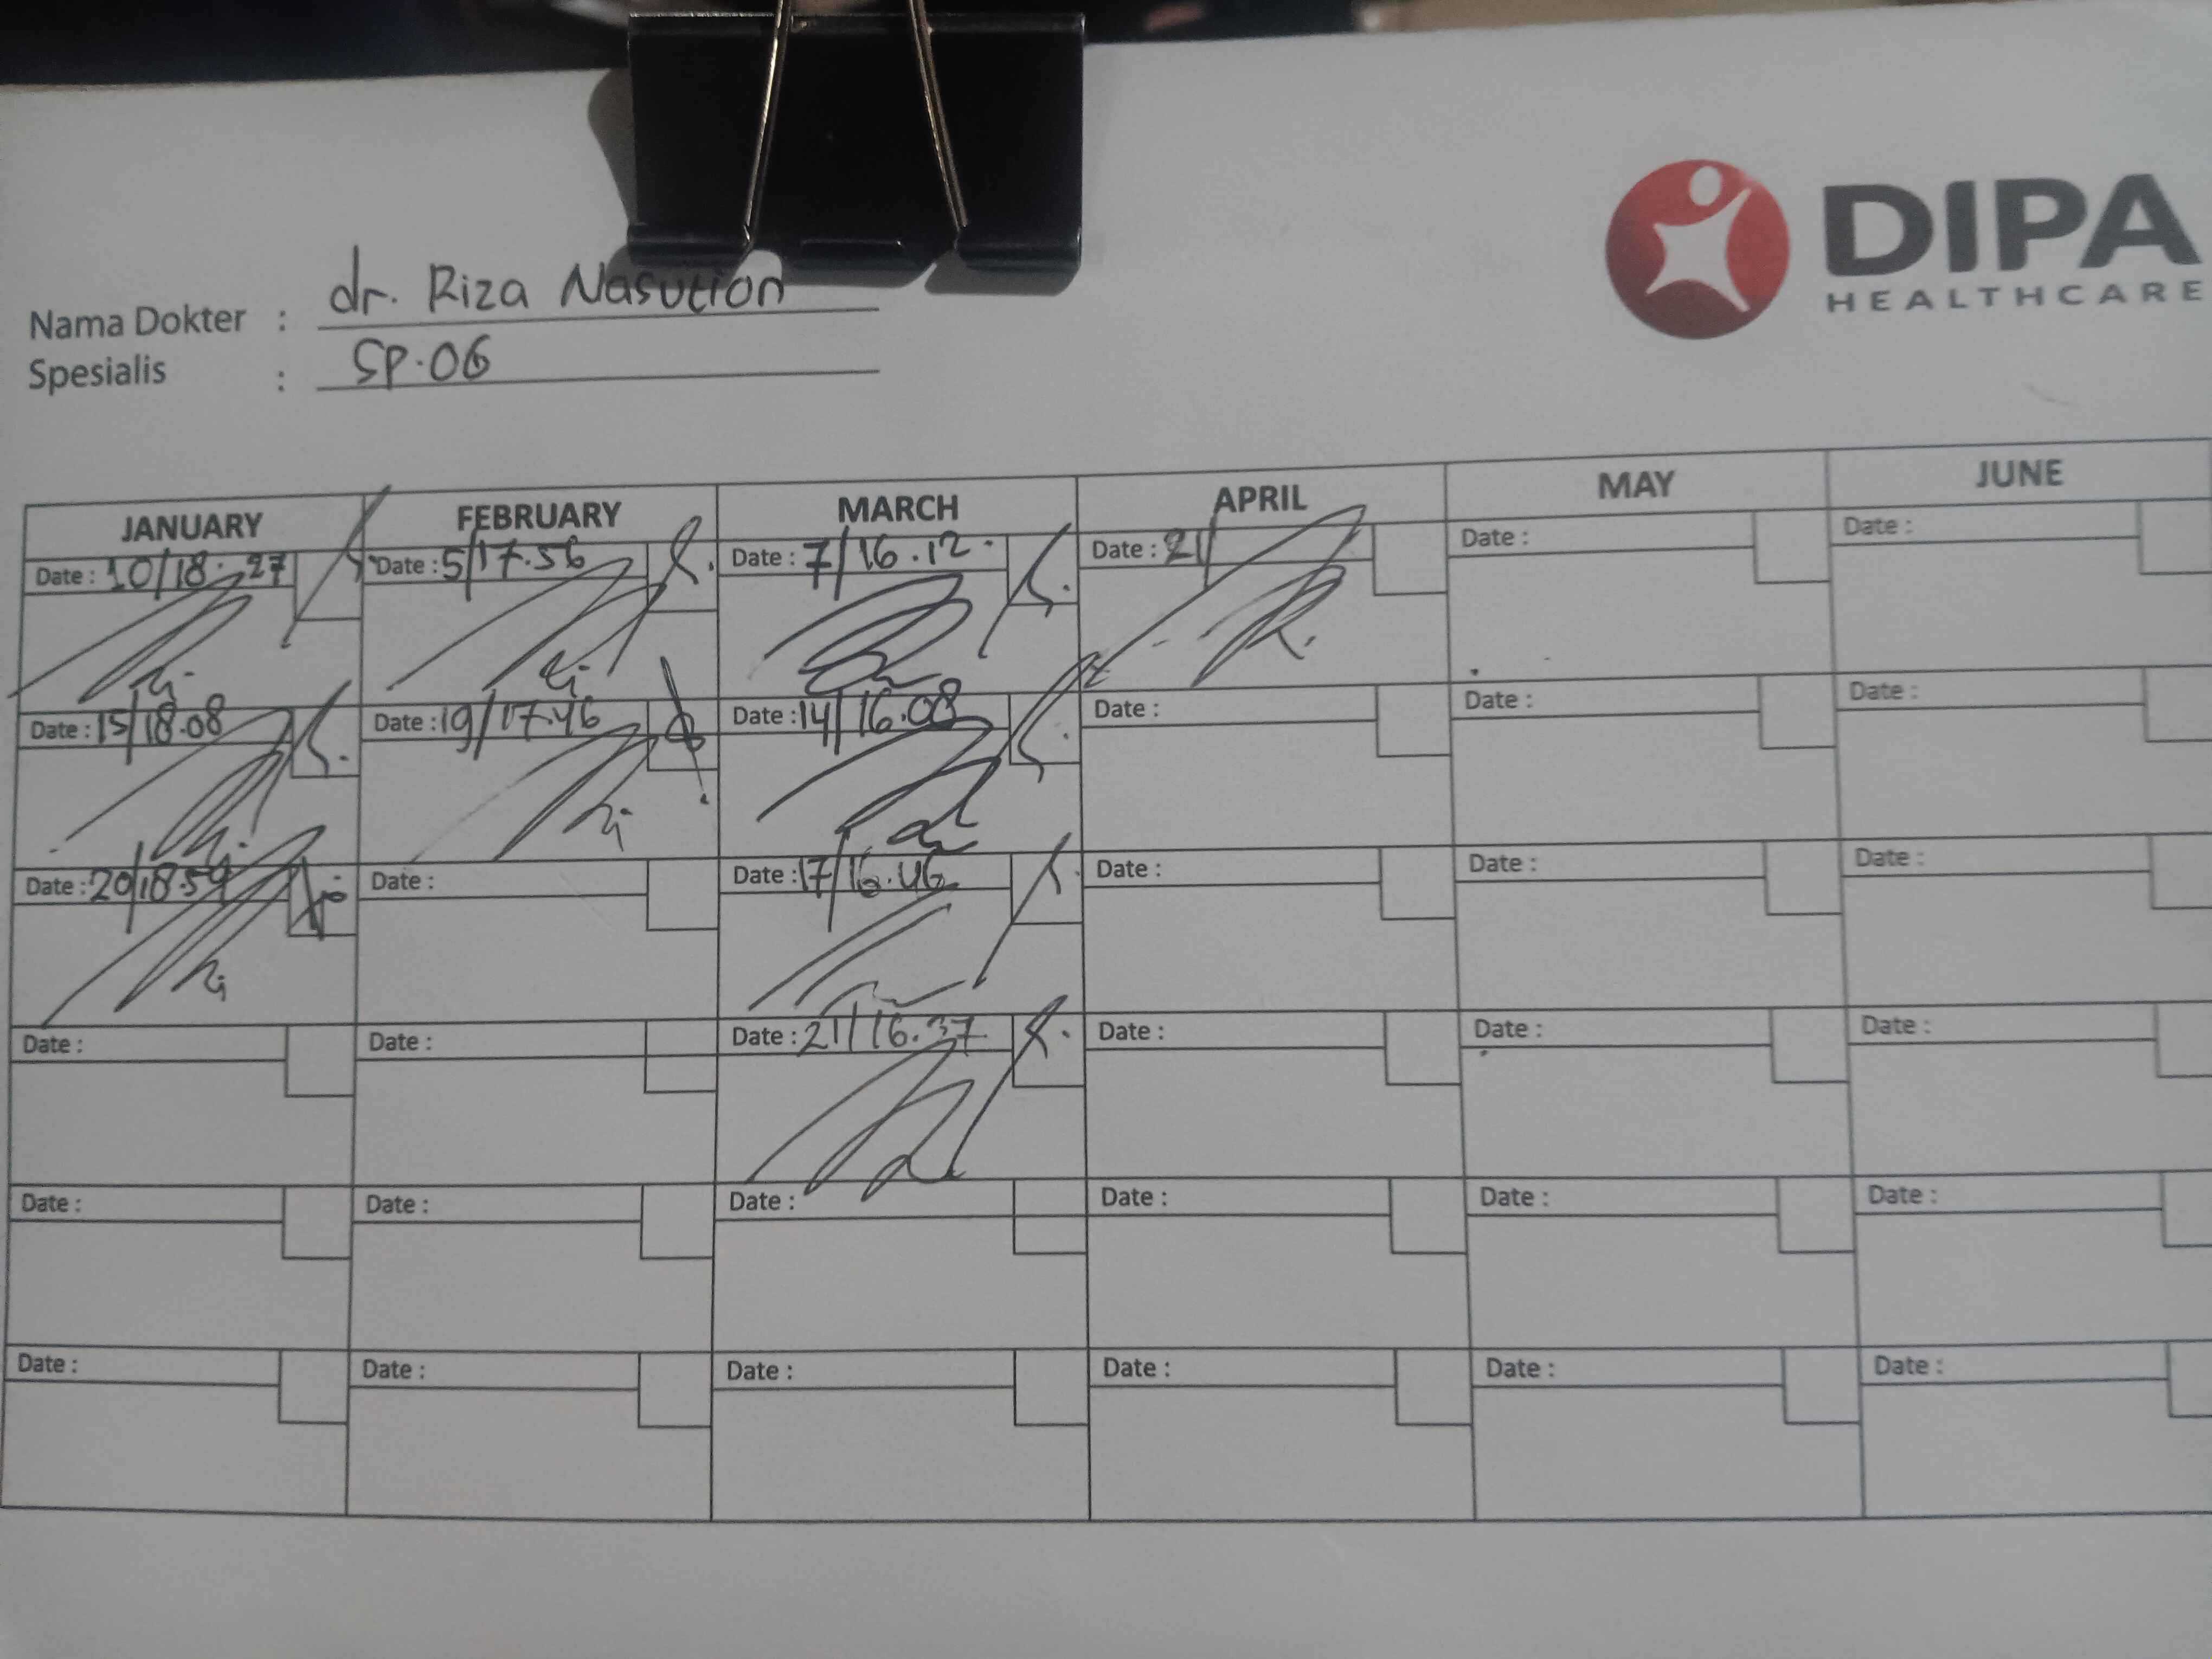 DIPA
HEALTHCARE
Nama Dokter : dr. Riza Nasution
Spesialis : SP.OG
JANUARY FEBRUARY MARCH APRIL MAY JUNE
Date : 10/18.27 Date : 5/17.56 Date : 7/16.12 Date : 21/ Date : Date :
Date : 15/18.08 Date : 19/17.46 Date : 14/16.08 Date : Date : Date :
Date : 20/18.59 Date : Date : 17/16.46 Date : Date : Date :
Date : Date : Date : 21/16.37 Date : Date : Date :
Date : Date : Date : Date : Date : Date :
Date : Date : Date : Date : Date : Date :